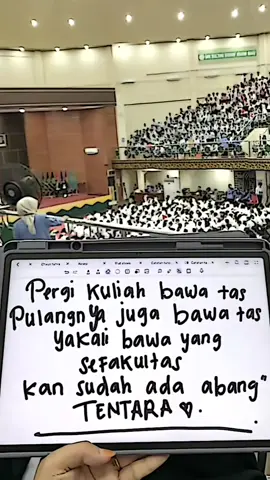 Pergi kuliah bawa tas
Pulangnya juga bawa tas
yakali bawa yang
sefakultas
kan sudah ada abang"
TENTARA ♡.